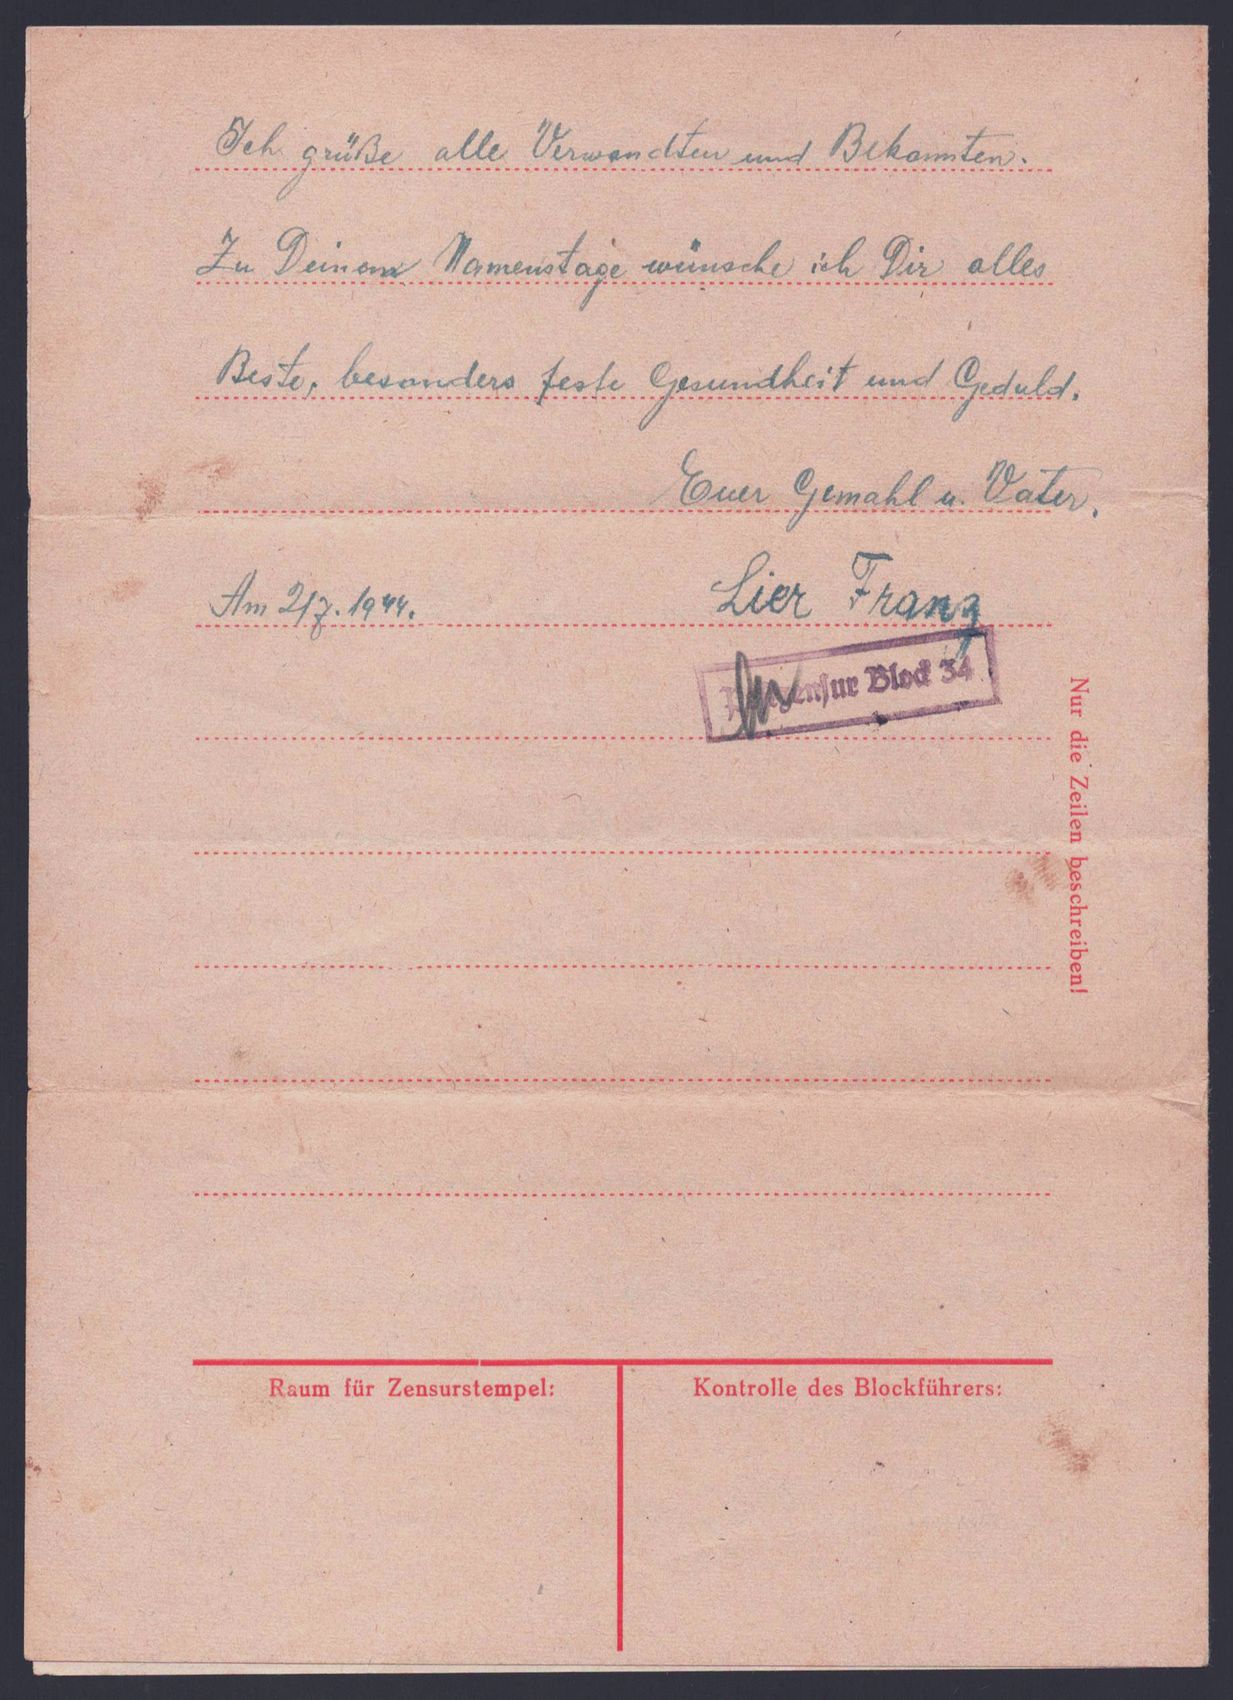 Ich grüße alle Verwandten und Bekannten.
Zu Deinem Namenstage wünsche ich Dir alles
Beste, besonders feste Gesundheit und Geduld.
Euer Gemahl u. Vater.
Am 2/7. 1944.
Lier Franz
Block 34
Nur die Zeilen beschreiben!
Raum für Zensurstempel:
Kontrolle des Blockführers: